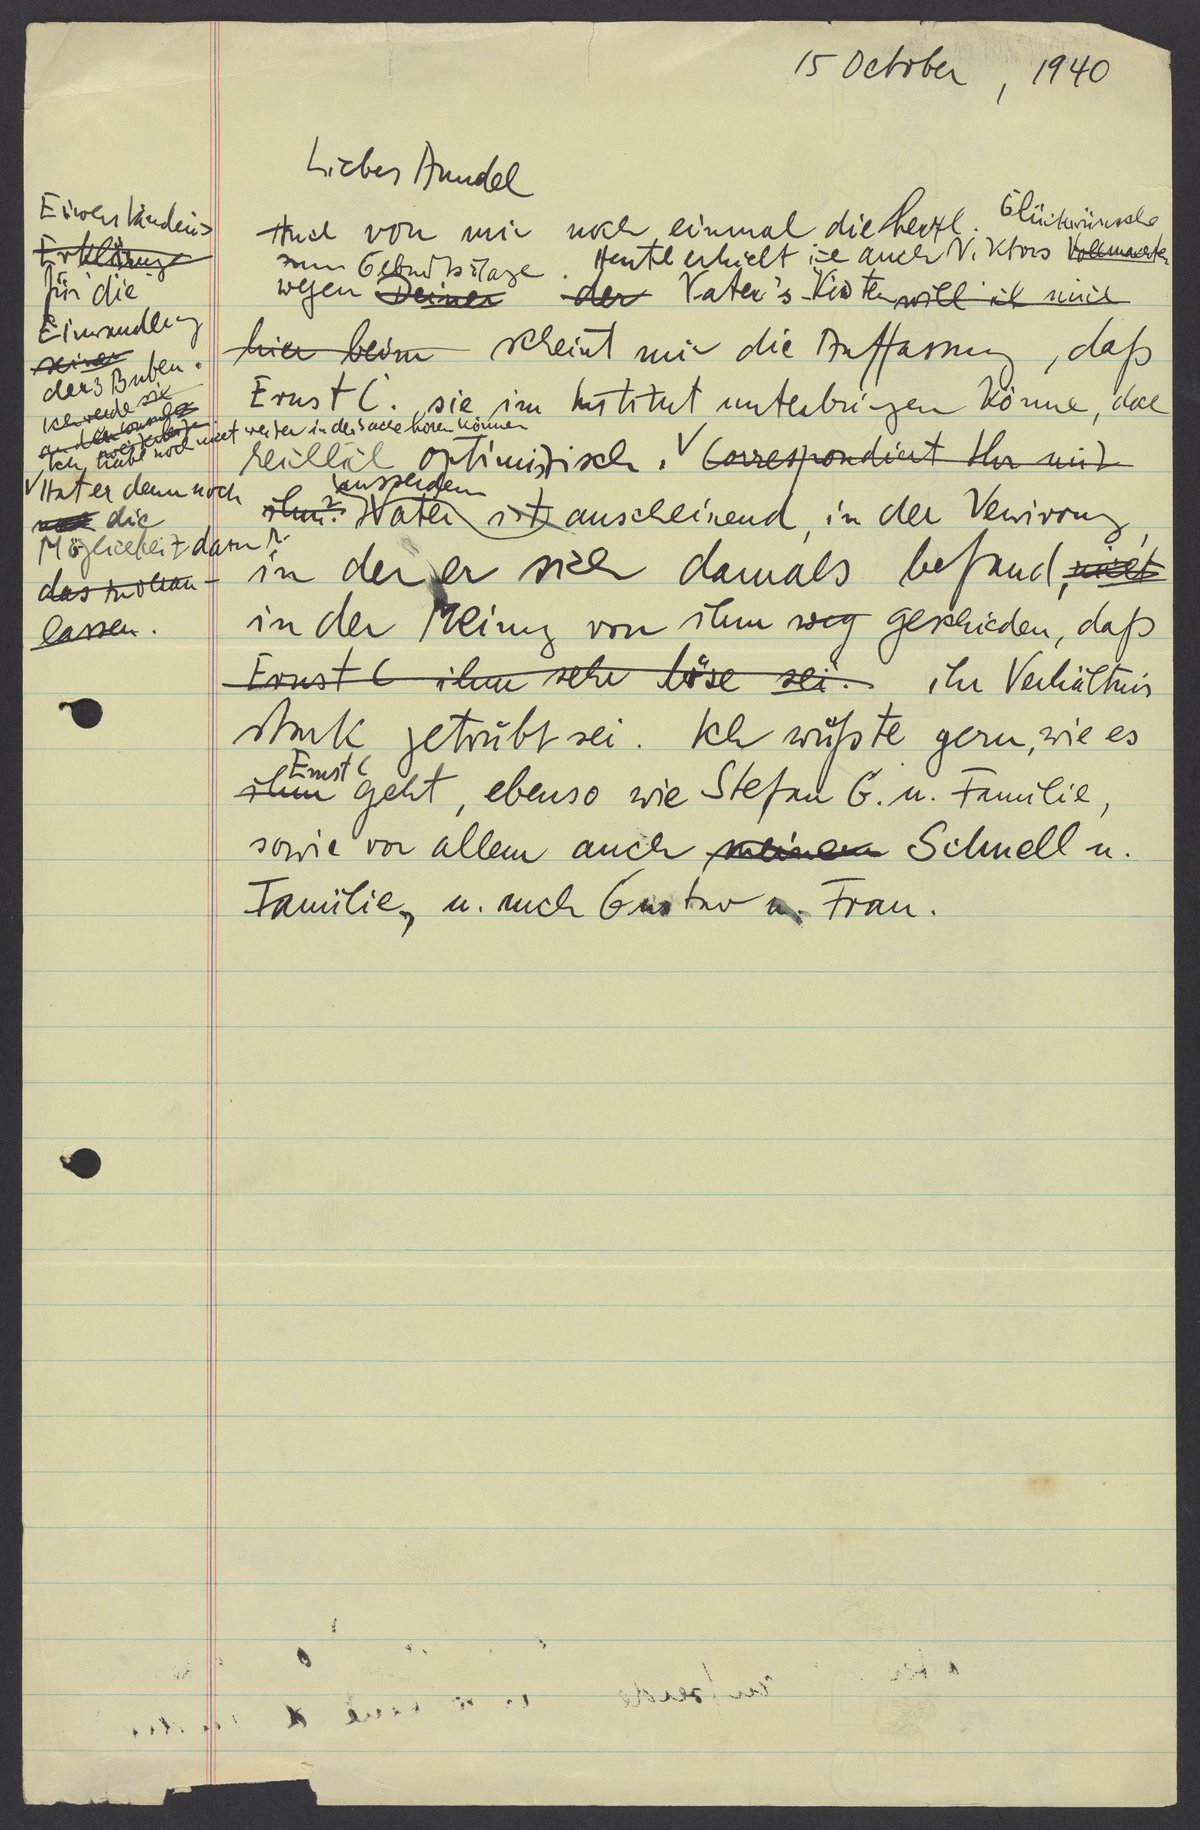 15 October, 1940
Liebes Anndel
Auch von mir noch einmal die herzl. Glückwünsche
zum Geburtstage. Heute erhielt ich auch Viktors Vollmachten
wegen Deiner der Vater's Kisten will ich mich
hier beim scheint mir die Auffassung, daß
Ernst C. sie im Institut unterbringen könne, doch
reichlich optimistisch. V Correspondiert Ihr mit
ihm? Vater ist ausserdem anscheinend, in der Verwirrung,
in der er sich damals befand, nicht
in der Meinung von ihm weg geschieden, daß
Ernst C ihm sehr böse sei. ihr Verhältnis
stark getrübt sei. Ich wüßte gern, wie es
ihm Ernst C geht, ebenso wie Stefan G. u. Familie,
sowie vor allem auch meinem Schnell u.
Familie, u. auch Gustav u. Frau.
Einverständnis
Erklärung
für die
Einwandlg
seiner
der 3 Buben.
Ich werde sie
an den
Ich habe noch nicht weiter in der Sache hören können
V Hat er denn noch
die
Möglichkeit dazu?
das zu
lassen.